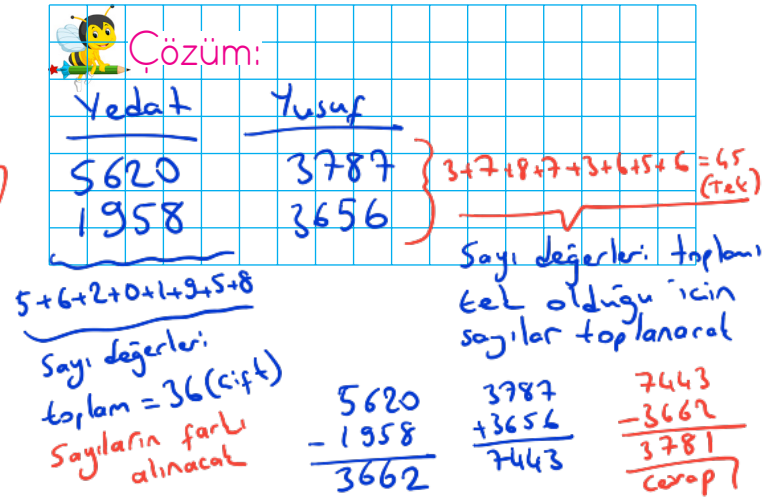 Çözüm:
Vedat Yusuf
5620 3787
1958 3656
3+7+8+7+3+6+5+6=45
(Tek)
Sayı değerleri toplamı
tek olduğu için
sayılar toplanacak
5+6+2+0+1+9+5+8
Sayı değerleri
toplam = 36 (çift)
Sayıların farkı
alınacak
5620
- 1958
3662
3787
+3656
7443
7443
-3662
3781
cevap